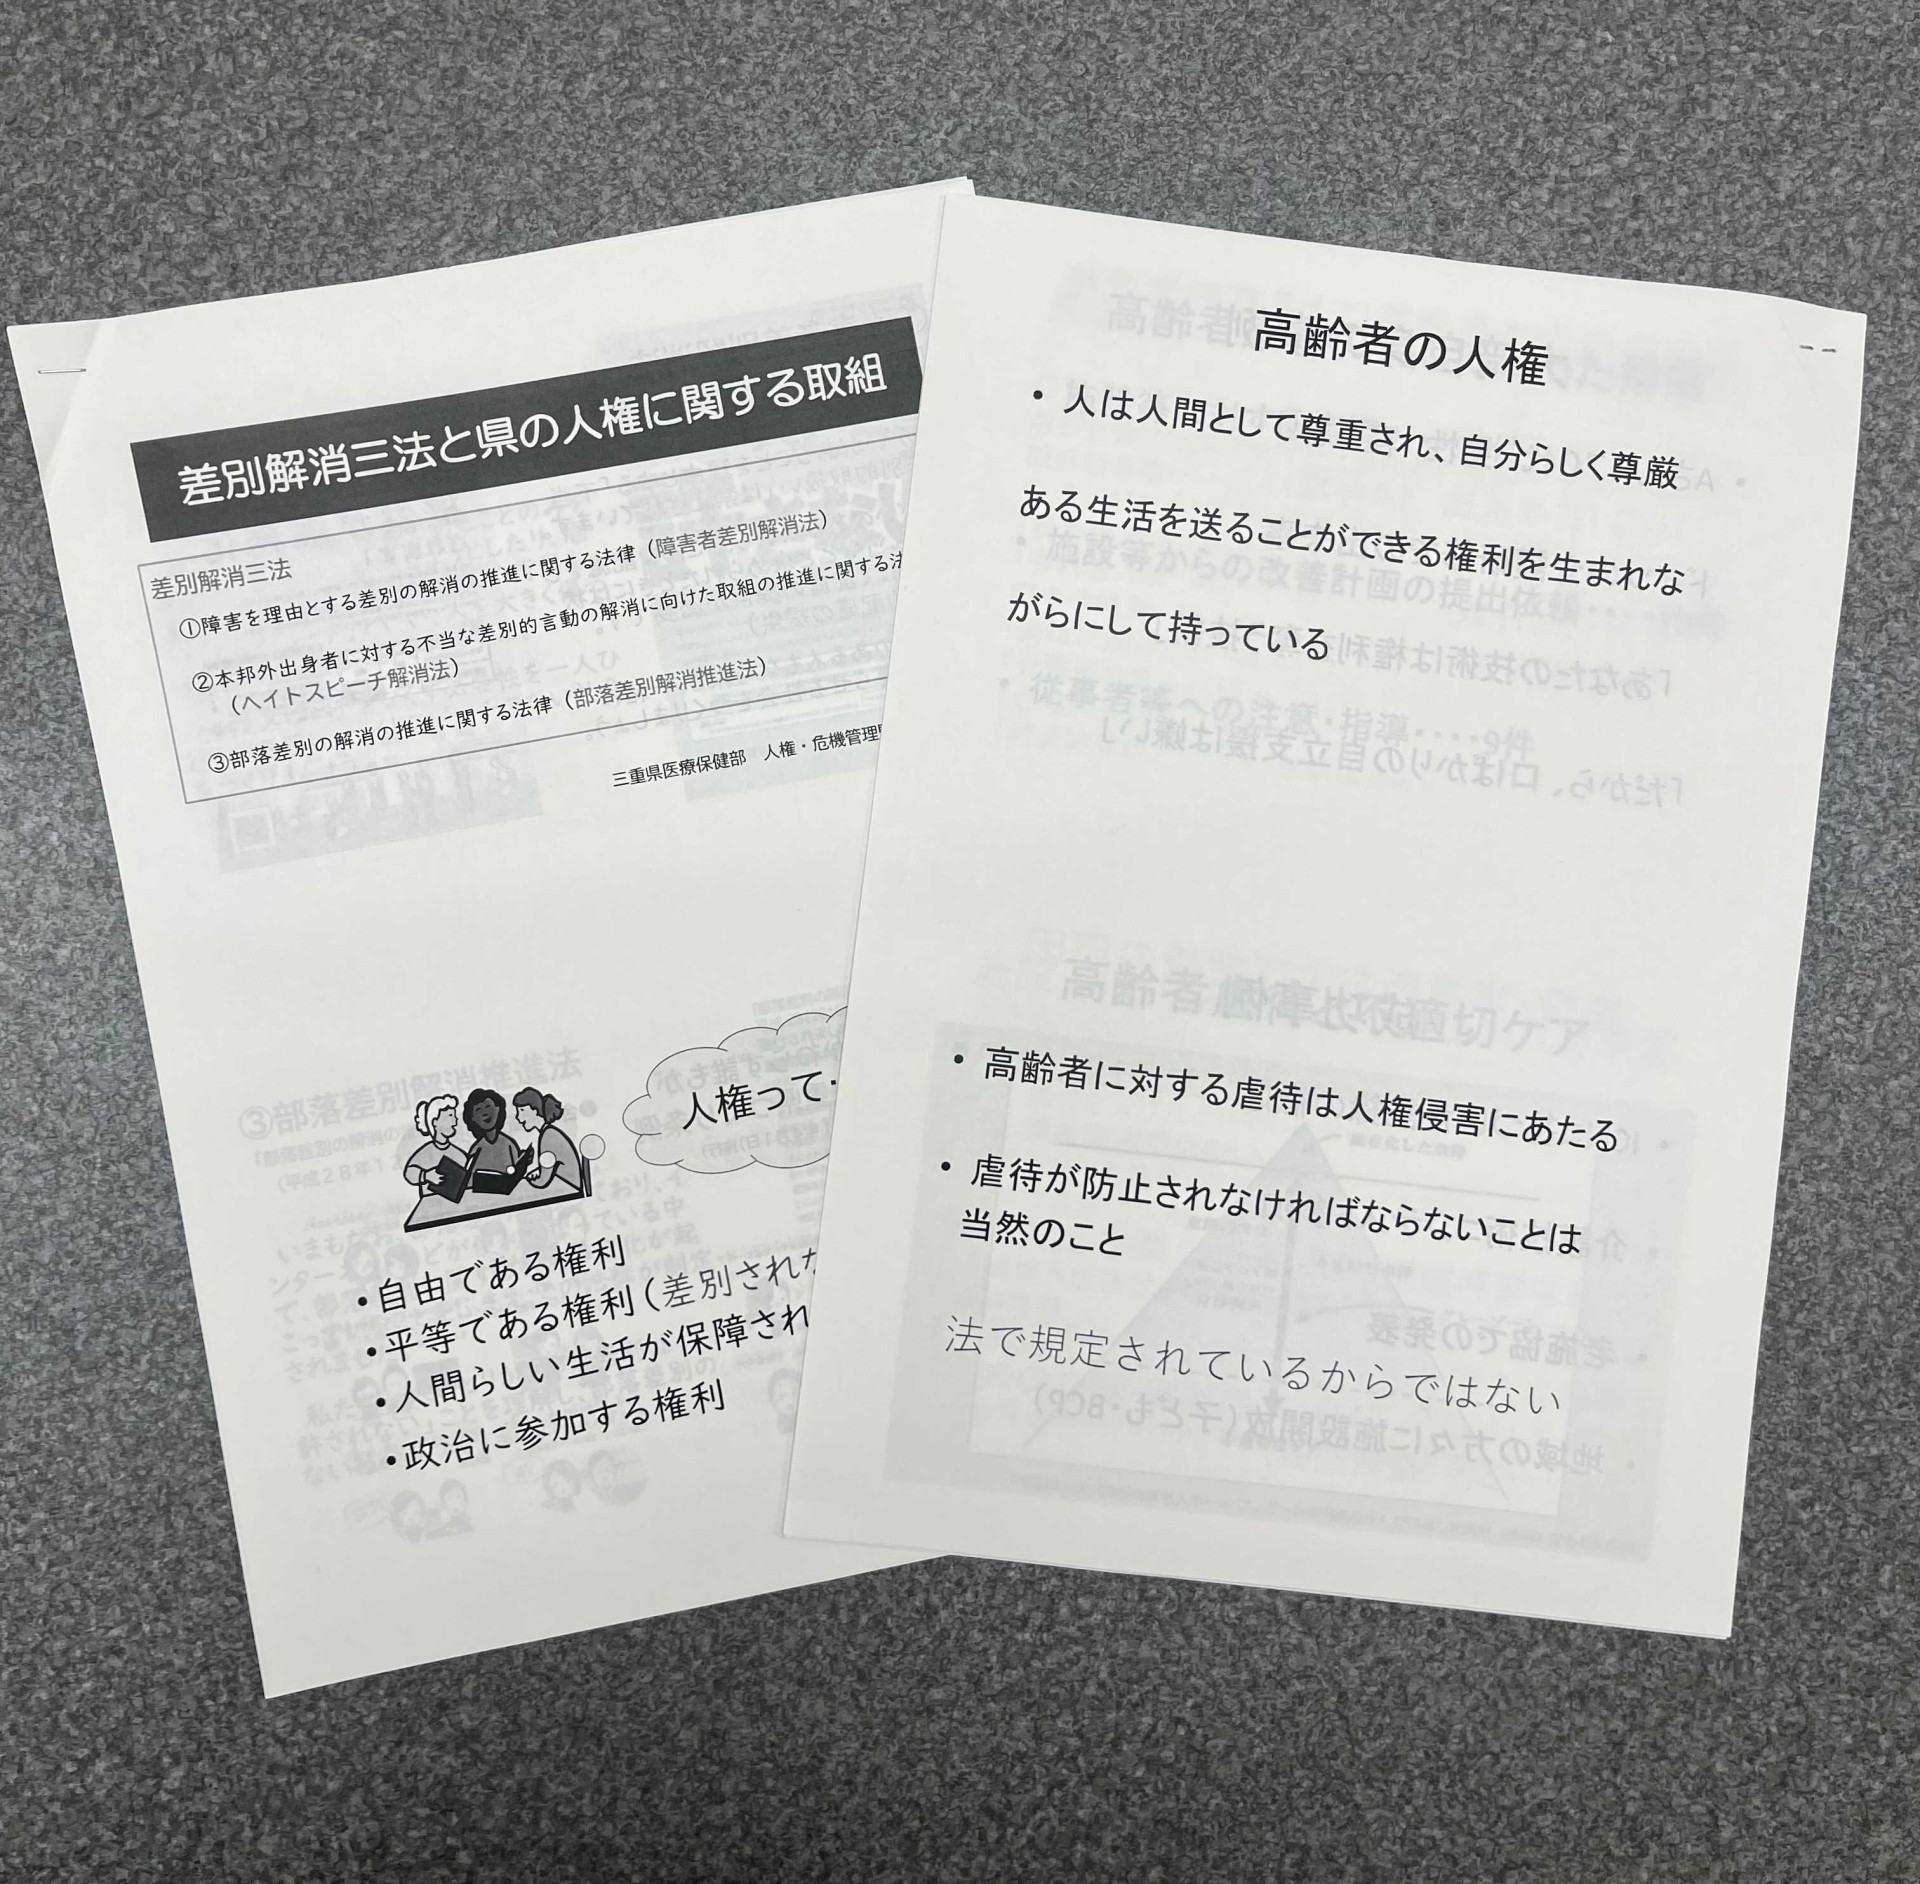 差別解消三法と県の人権に関する取組
差別解消三法
①障害を理由とする差別の解消の推進に関する法律（障害者差別解消法）
②本邦外出身者に対する不当な差別的言動の解消に向けた取組の推進に関する法
（ヘイトスピーチ解消法）
③部落差別の解消の推進に関する法律（部落差別解消推進法）
三重県医療保健部　人権・危機管理
人権って・
•自由である権利
•平等である権利（差別されな
•人間らしい生活が保障され
•政治に参加する権利
高齢者の人権
• 人は人間として尊重され、自分らしく尊厳
ある生活を送ることができる権利を生まれな
がらにして持っている
• 高齢者に対する虐待は人権侵害にあたる
• 虐待が防止されなければならないことは
当然のこと
法で規定されているからではない